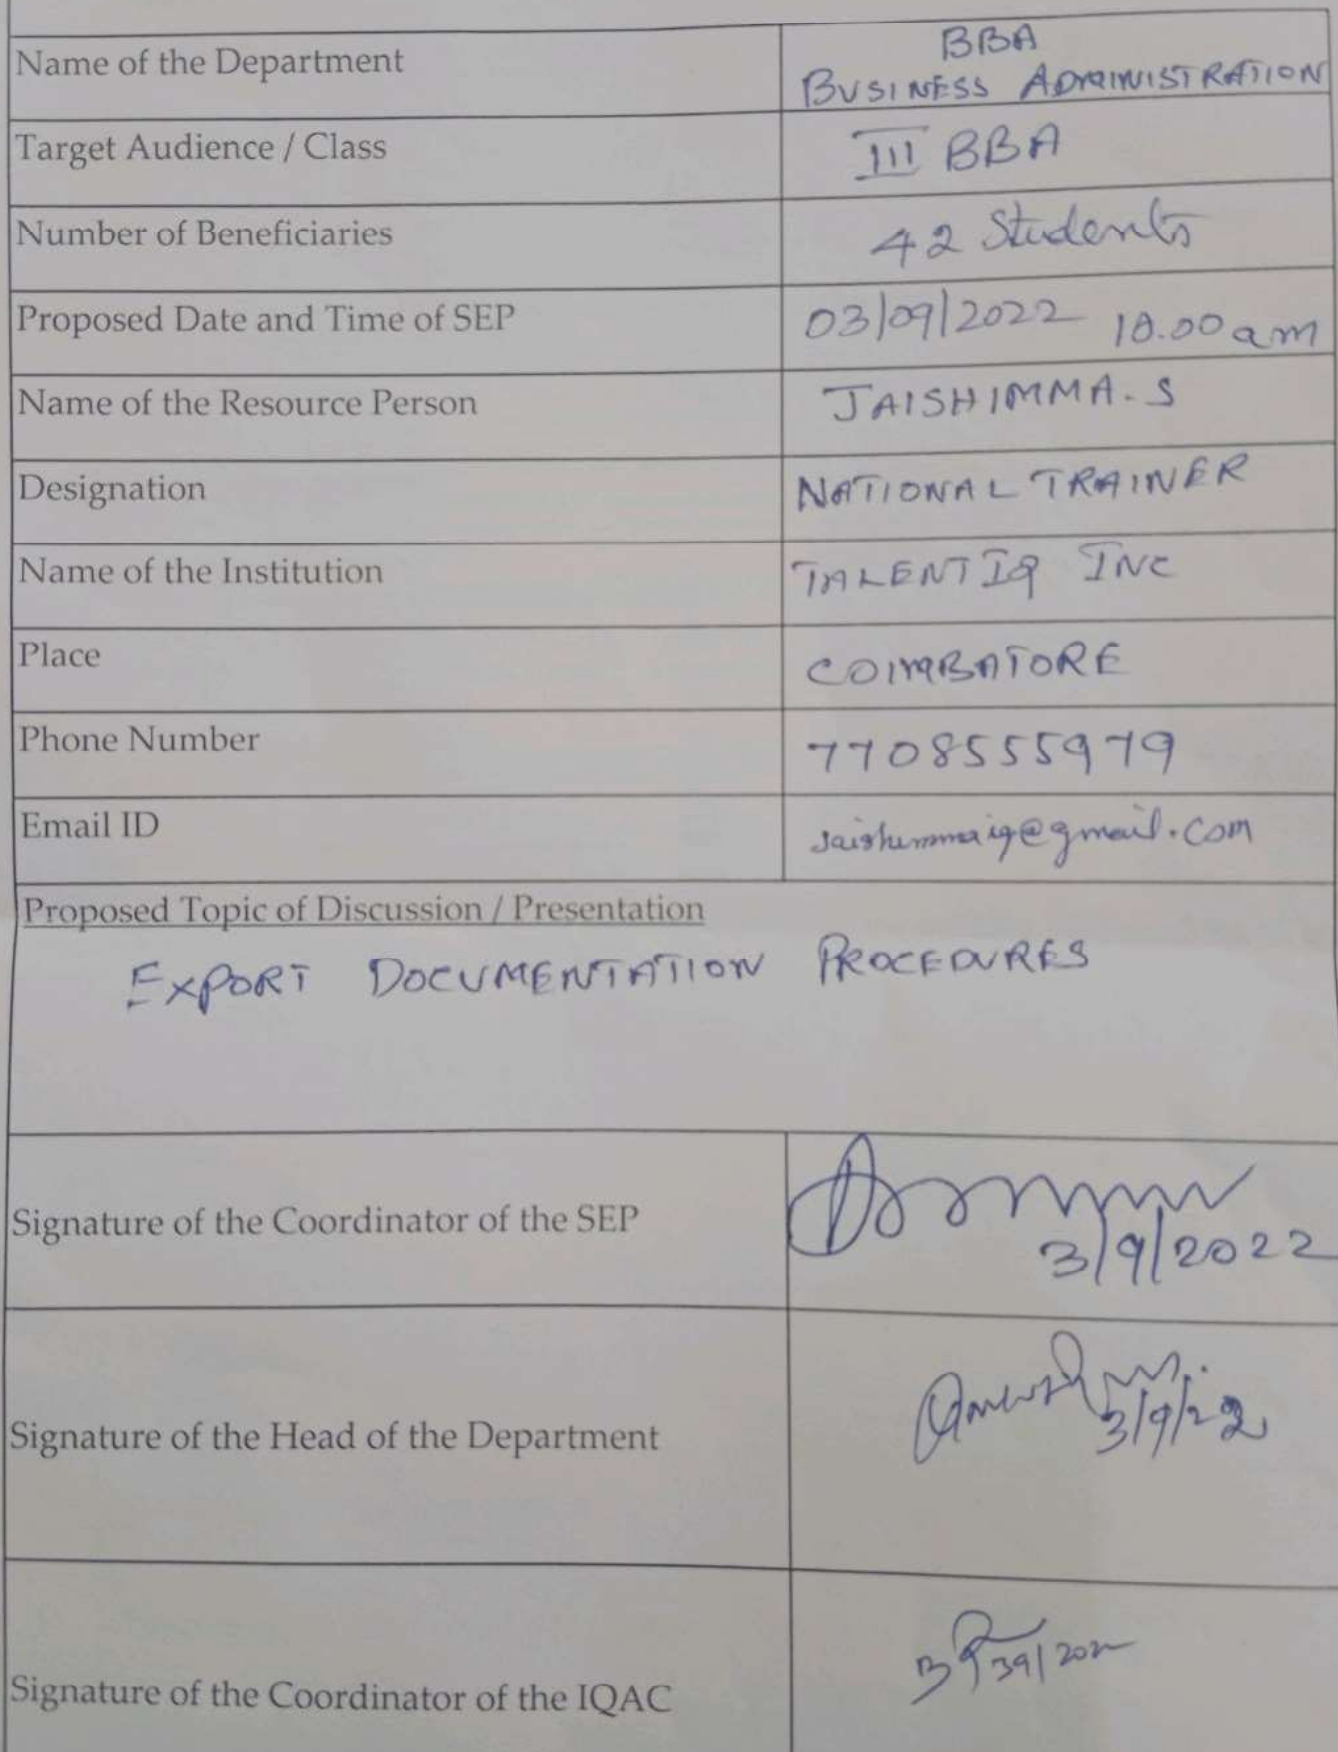 Name of the Department
BBA
BUSINESS ADMINISTRATION
Target Audience / Class
III BBA
Number of Beneficiaries
42 Students
Proposed Date and Time of SEP
03/09/2022 10.00 am
Name of the Resource Person
JAISHIMMA.S
Designation
NATIONAL TRAINER
Name of the Institution
TALENTIQ INC
Place
COIMBATORE
Phone Number
7708555979
Email ID
jaishimmaiq@gmail.com
Proposed Topic of Discussion / Presentation
EXPORT DOCUMENTATION PROCEDURES
Signature of the Coordinator of the SEP
3/9/2022
Signature of the Head of the Department
3/9/22
Signature of the Coordinator of the IQAC